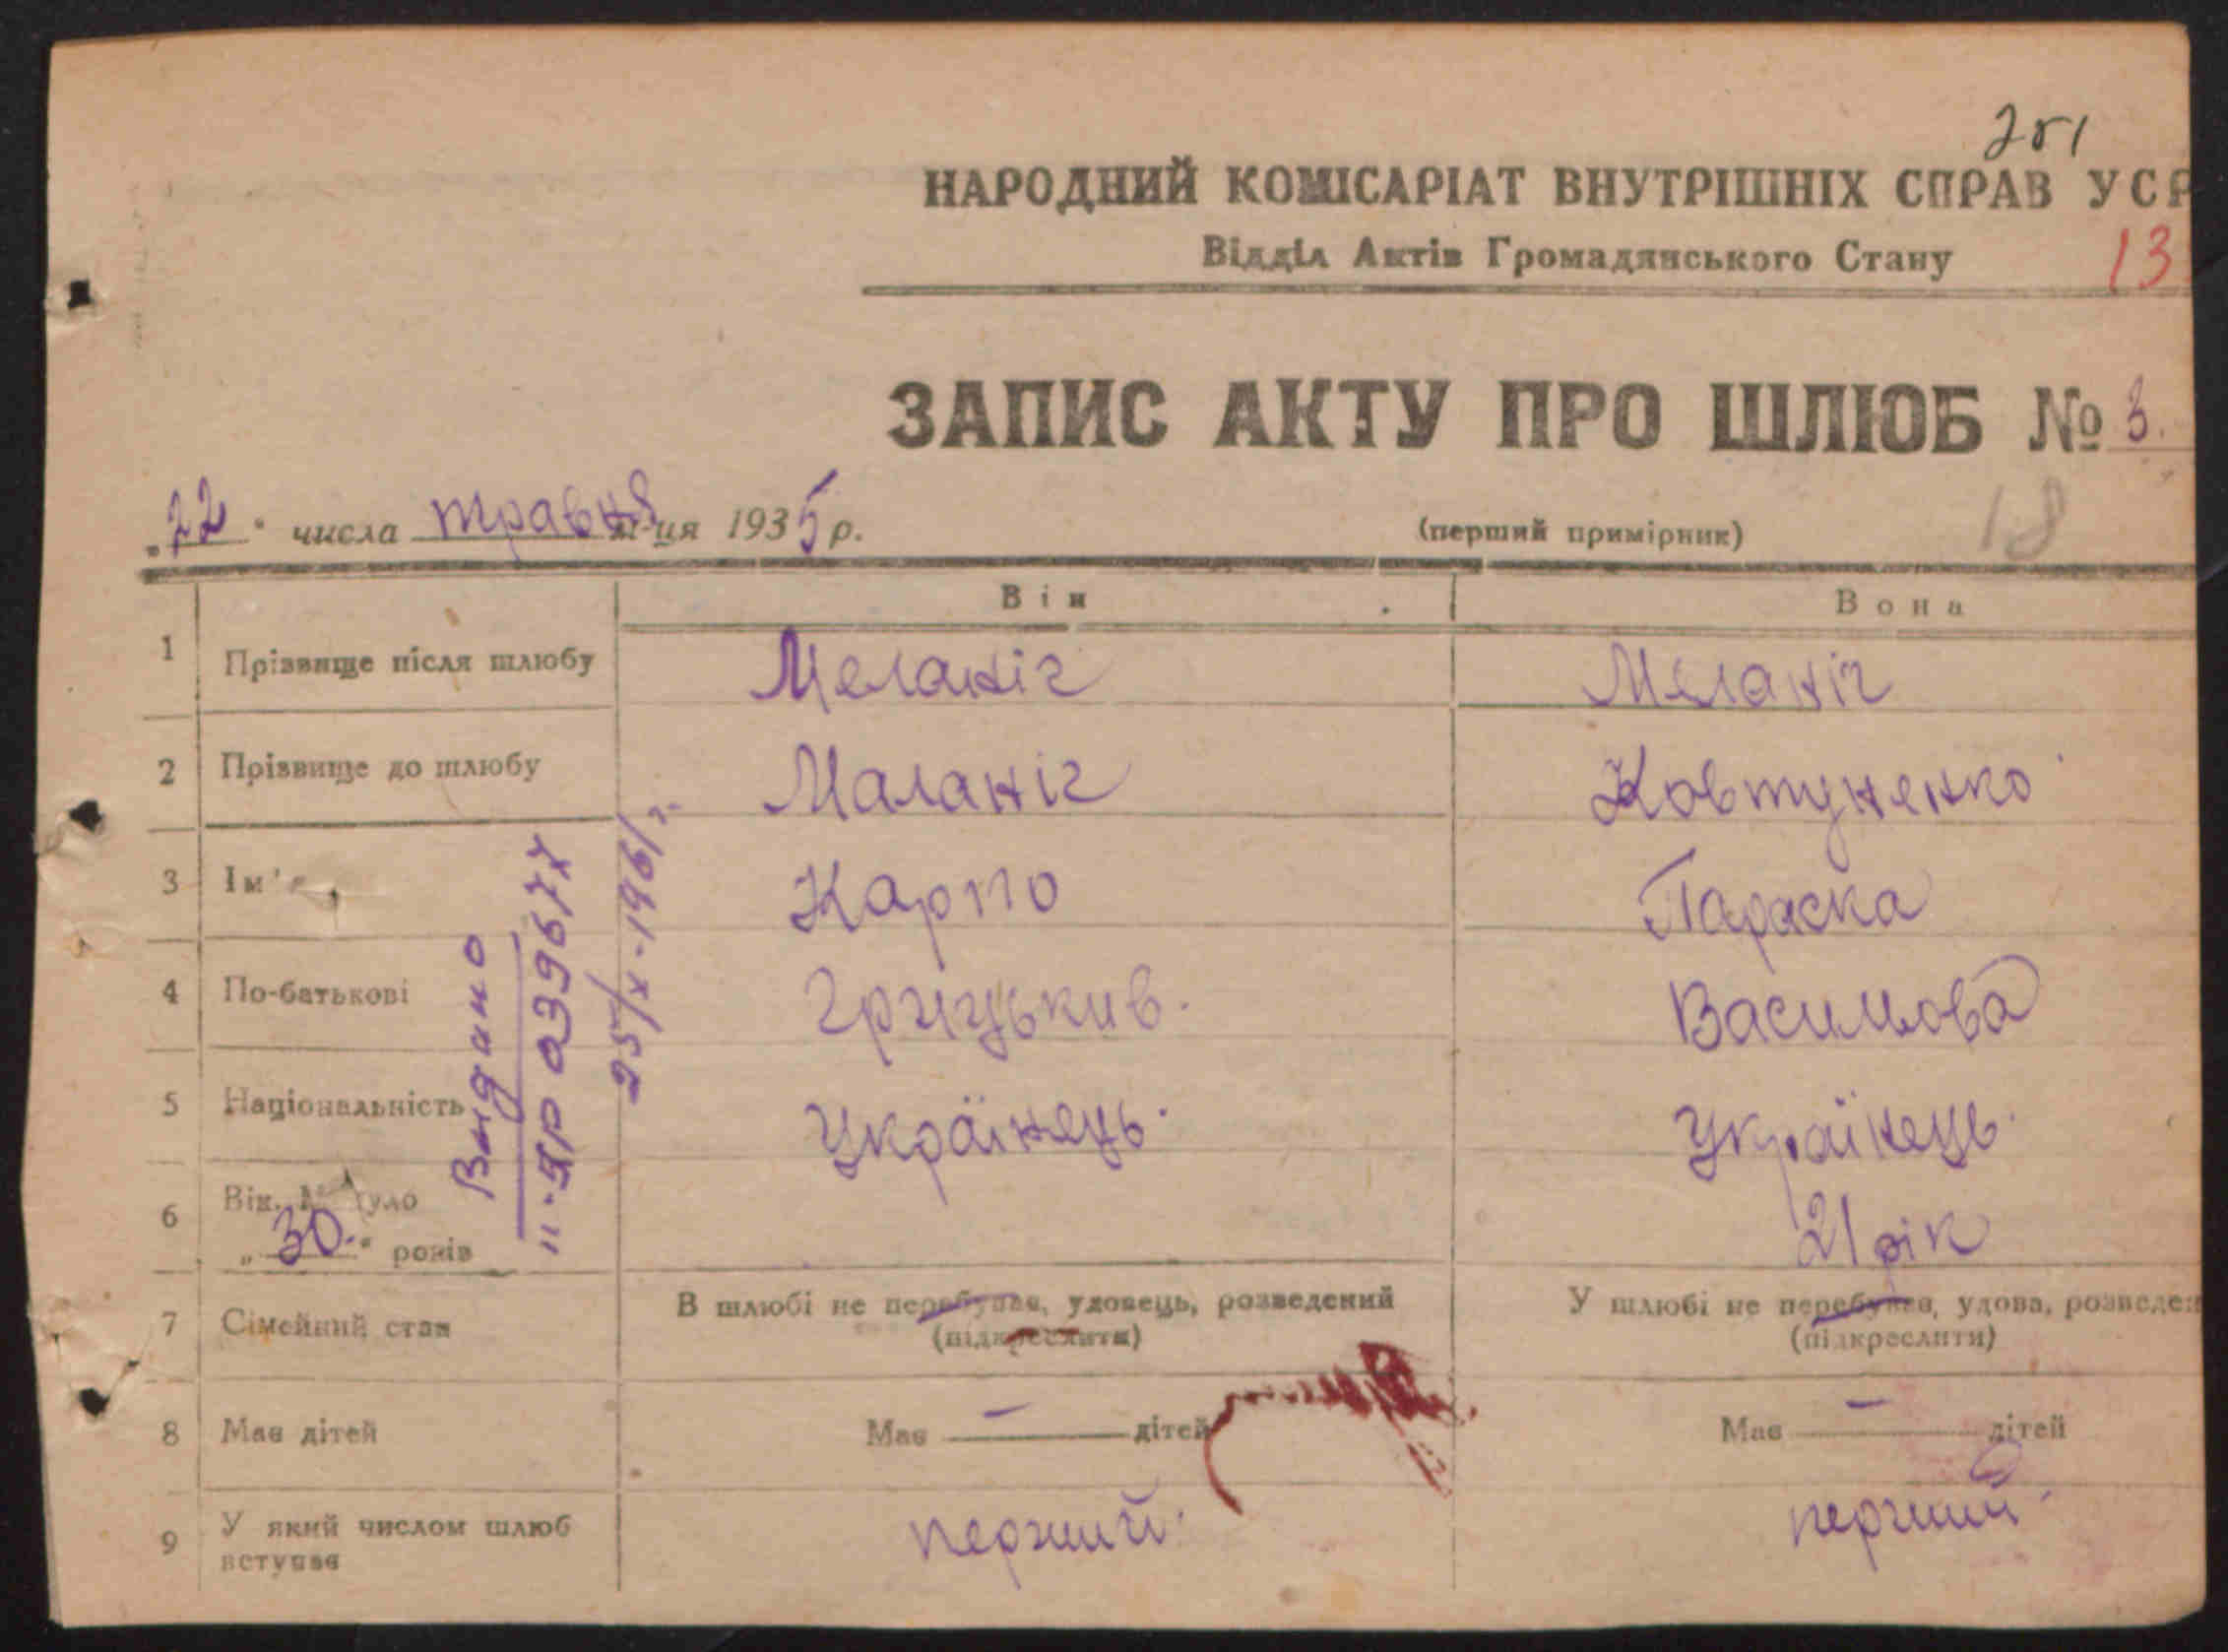 201
НАРОДНИЙ КОМІСАРІАТ ВНУТРІШНІХ СПРАВ УСР
Відділ Актів Громадянського Стану 13
ЗАПИС АКТУ ПРО ШЛЮБ № 3.
„22" числа травня м-ця 1935 р. (перший примірник) 18
Він Вона
1 Прізвище після шлюбу Меланіг Меланіг
2 Прізвище до шлюбу Маланіг Ковтуненко
3 Ім'я Карпо Параска
4 По-батькові Грицьків. Васильова
5 Національність Українець. Українець.
6 Вік. Минуло
„30." років 21 рік
7 Сімейний стан В шлюбі не перебував, удовець, розведений У шлюбі не перебувае, удова, розведен
(підкреслити) (підкреслити)
8 Має дітей Має — дітей Має — дітей
9 У який числом шлюб вступає перший. перший.
Видано
II-ЯР 039677
25/X-1961 г.